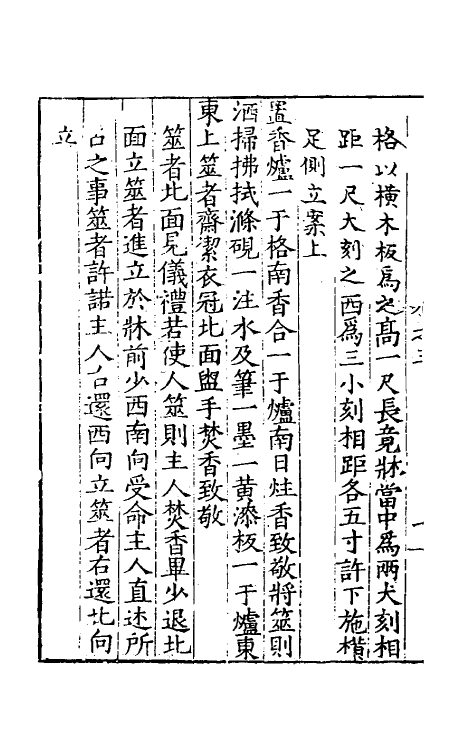 格以橫木板爲之高一尺長竟牀當中爲兩大刻相
距一尺大刻之西爲三小刻相距各五寸許下施橫
足側立案上
置香爐一于格南香合一于爐南日炷香致敬將筮則
洒掃拂拭滌硯一注水及筆一墨一黄漆板一于爐東
東上筮者齋潔衣冠北面盥手焚香致敬
筮者北面見儀禮若使人筮則主人焚香畢少退北
面立筮者進立於牀前少西南向受命主人直述所
占之事筮者許諾主人右還西向立筮者右還北向
立